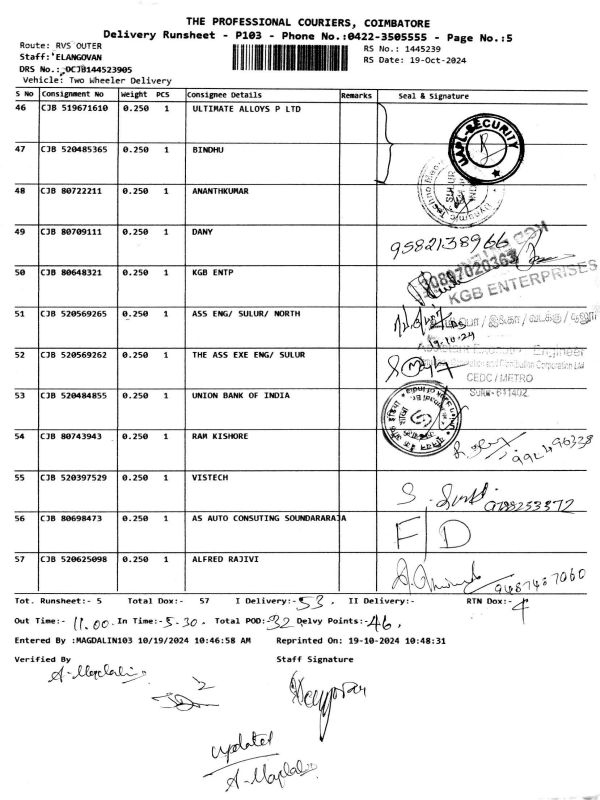 THE PROFESSIONAL COURIERS, COIMBATORE
Delivery Runsheet - P103 - Phone No.:0422-3505555 - Page No.:5
Route: RVS OUTER
RS No.: 1445239
Staff: ELANGOVAN
RS Date: 19-Oct-2024
DRS No.: OCJB144523905
Vehicle: Two Wheeler Delivery
S No Consignment No Weight PCS Consignee Details Remarks Seal & Signature
46 CJB 519671610 0.250 1 ULTIMATE ALLOYS P LTD
UAPL-SECURITY
47 CJB 520485365 0.250 1 BINDHU
48 CJB 80722211 0.250 1 ANANTHKUMAR
SULUR
49 CJB 80709111 0.250 1 DANY 9582138966
50 CJB 80648321 0.250 1 KGB ENTP
KGB ENTERPRISES
51 CJB 520569265 0.250 1 ASS ENG/ SULUR/ NORTH
19-10-24
52 CJB 520569262 0.250 1 THE ASS EXE ENG/ SULUR
Engineer
Distribution Corporation Ltd
CEDC / METRO
Sulur - 641402.
53 CJB 520484855 0.250 1 UNION BANK OF INDIA
54 CJB 80743943 0.250 1 RAM KISHORE
55 CJB 520397529 0.250 1 VISTECH
56 CJB 80698473 0.250 1 AS AUTO CONSUTING SOUNDARARAJA F/D
57 CJB 520625098 0.250 1 ALFRED RAJIVI 9487487060
Tot. Runsheet:- 5 Total Dox:- 57 I Delivery:- 53. II Delivery:- RTN Dox:- 4
Out Time:- 11.00. In Time:- 5.30. Total POD: 32 Delvy Points:- 46.
Entered By :MAGDALIN103 10/19/2024 10:46:58 AM Reprinted On: 19-10-2024 10:48:31
Verified By Staff Signature
A. Magdalin
updated
A. Magdalin